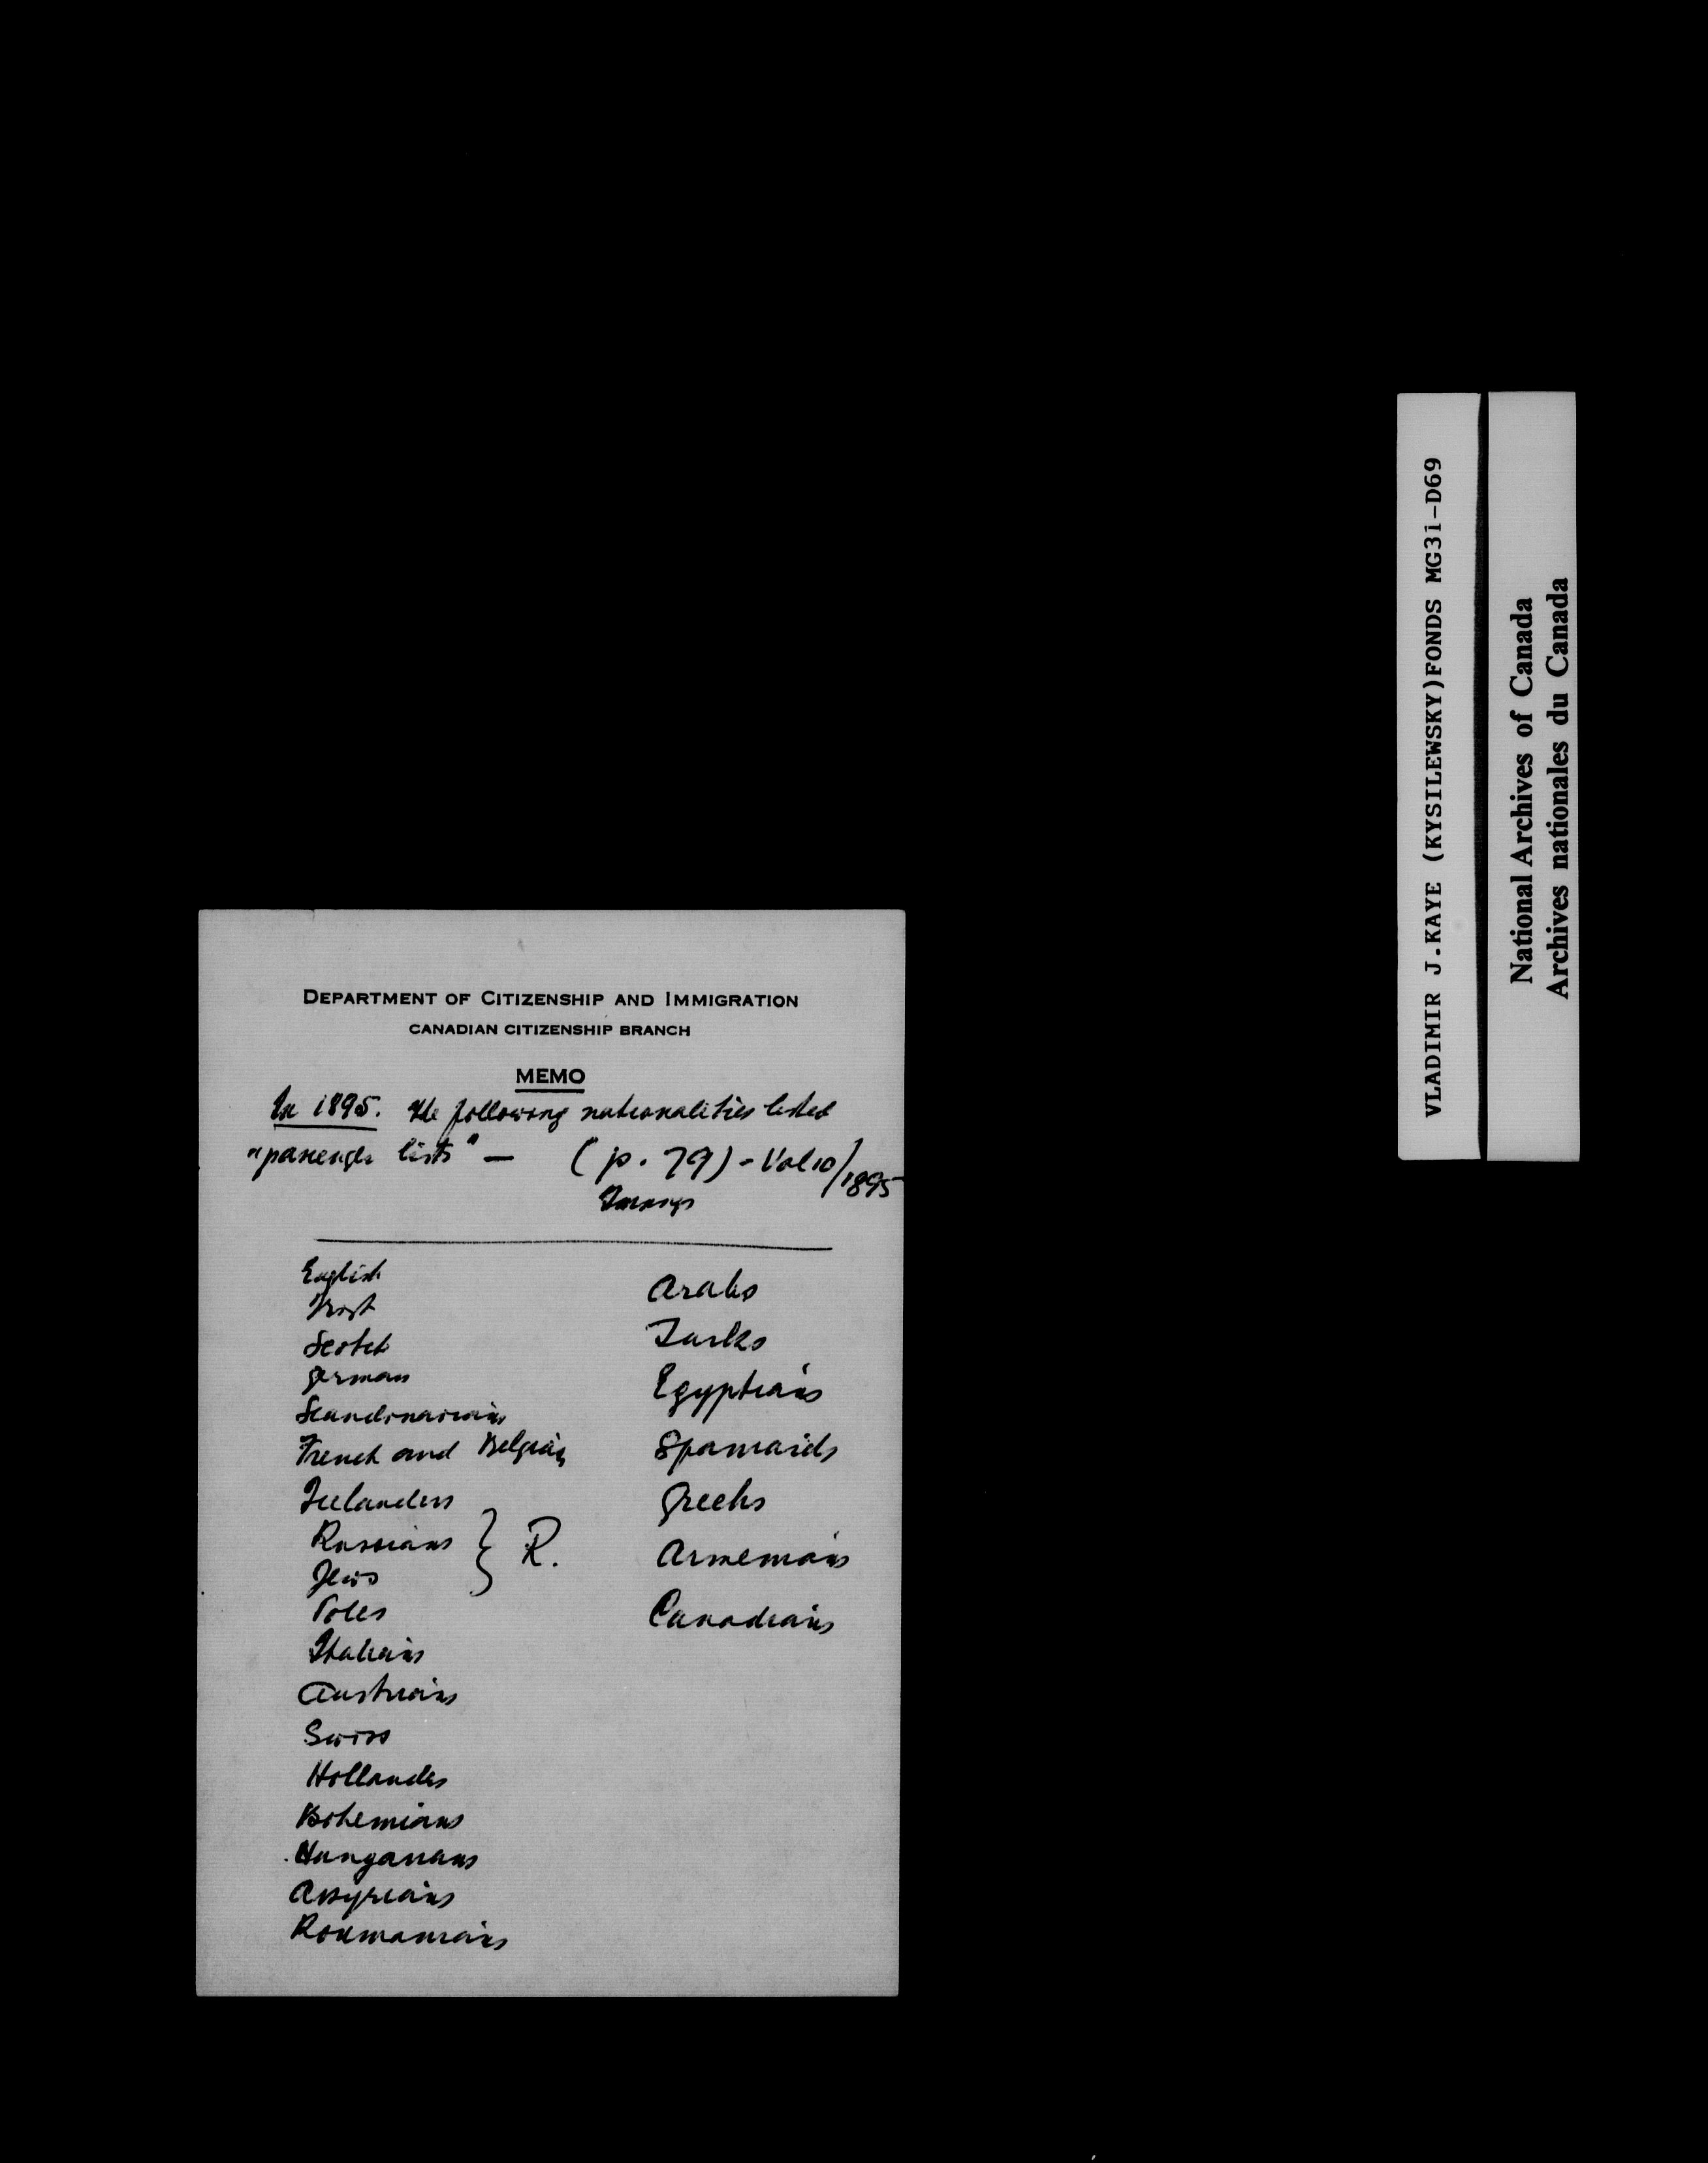 DEPARTMENT OF CITIZENSHIP AND IMMIGRATION
CANADIAN CITIZENSHIP BRANCH
MEMO
In 1895. the following nationalities listed
"passenger lists" — (p. 79) - Vol 10/1895
English
Irish
Scotch
German
Scandinavians
French and Belgians
Icelanders
Russians } R.
Jews
Poles
Italians
Austrians
Swiss
Hollanders
Bohemians
Hungarians
Assyrians
Roumanians
Arabs
Turks
Egyptians
Spaniards
Greeks
Armenians
Canadians
VLADIMIR J.KAYE (KYSILEWSKY)FONDS MG31-D69
National Archives of Canada
Archives nationales du Canada